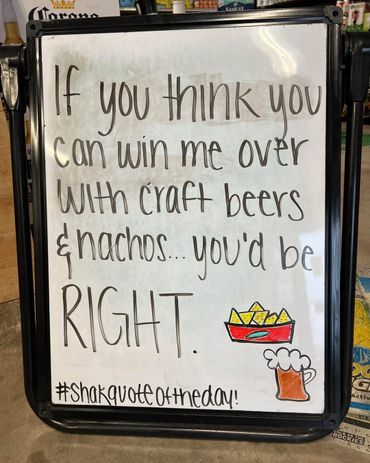 Corona
If you think you
can win me over
with craft beers
& nachos... you'd be
RIGHT.
#shakquoteoftheday!